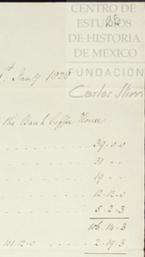 CENTRO DE
ESTUDIOS
DE HISTORIA
DE MEXICO
FUNDACIÓN
Carlos Slim
the Bank Coffee House
39..0..0
31
19
12..12..0
5..2..3
106..14..3
101..12..0 2..19..3